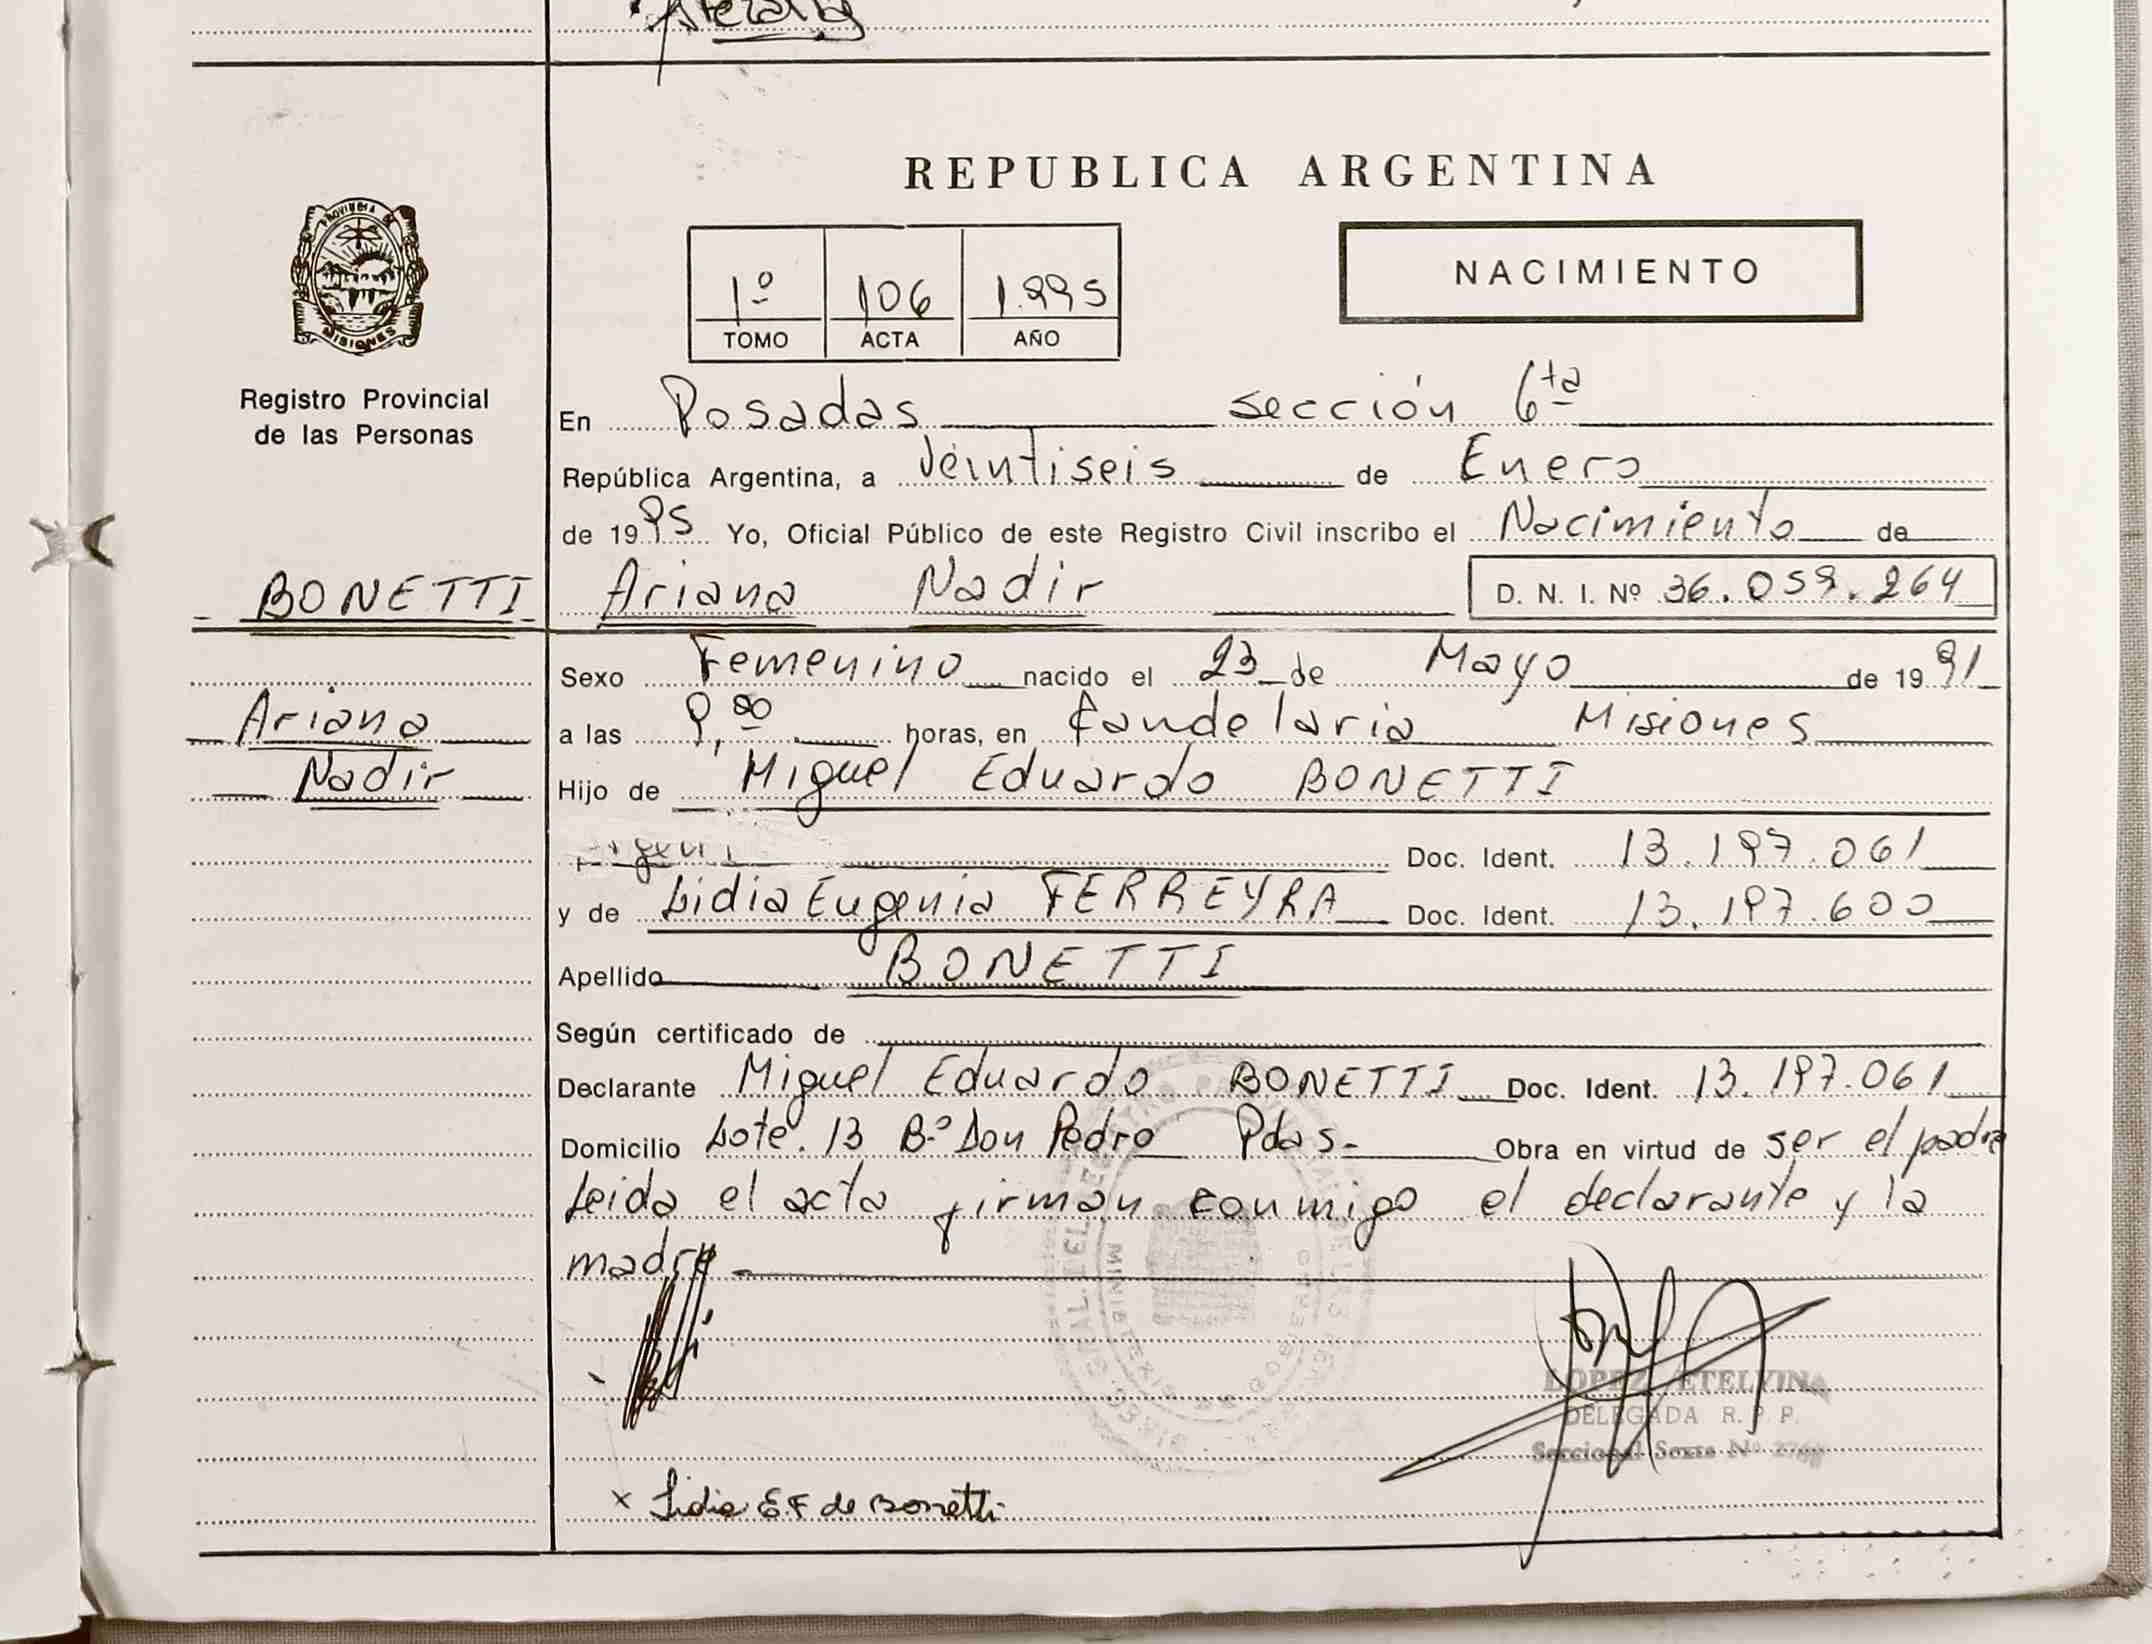 REPUBLICA ARGENTINA
PROVINCIA DE
MISIONES
Registro Provincial
de las Personas
1º 106 1.995
TOMO ACTA AÑO
NACIMIENTO
En Posadas sección 6ta
República Argentina, a Veintiseis de Enero
de 1995 Yo, Oficial Público de este Registro Civil inscribo el Nacimiento de
BONETTI Ariana Nadir D. N. I. Nº 36.059.264
Sexo Femenino nacido el 23 de Mayo de 1991
Ariana
a las 9,00 horas, en Candelaria Misiones
Nadir
Hijo de Miguel Eduardo BONETTI
Doc. Ident. 13.197.061
y de Lidia Eugenia FERREYRA Doc. Ident. 13.197.600
Apellido BONETTI
Según certificado de
Declarante Miguel Eduardo BONETTI Doc. Ident. 13.197.061
Domicilio Lote. 13 Bº Don Pedro Pdas- Obra en virtud de ser el padre
Leida el acta firman conmigo el declarante y la
madre
LOPEZ ETELVINA
DELEGADA R. P. P.
Seccional Sexta Nº
x Lidia E.F de Bonetti